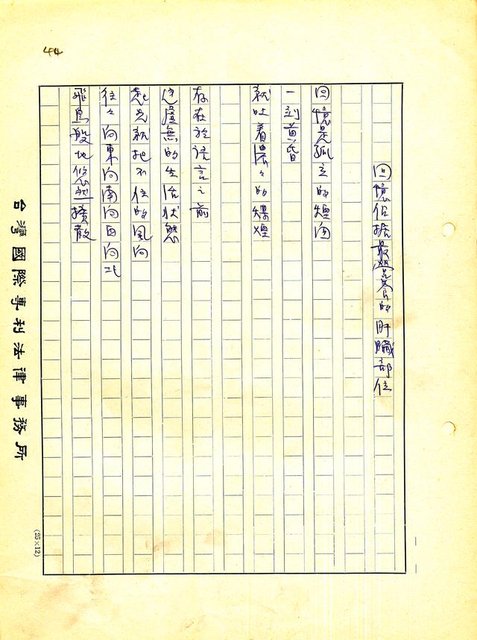 44
回憶佔據最陰暗的肝臟部位
回憶是孤立的煙囪
一到黃昏
就吐着濃々的煤煙
存在於語言之前
這虛無的生活狀態
起先就把不住的風向
往々向東向南向西向北
飛鳥般地悠然擴散
台灣國際專利法律事務所
(25×12)